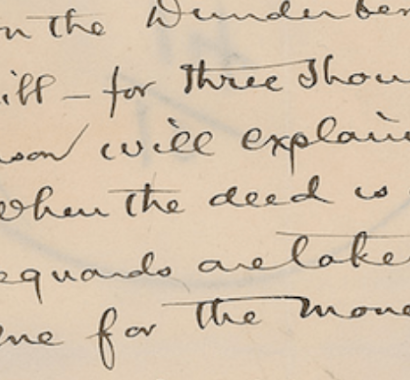 n the Wunderber
ill – for three Thou
nson will explain
When the deed is
eguards are take
me for the mone